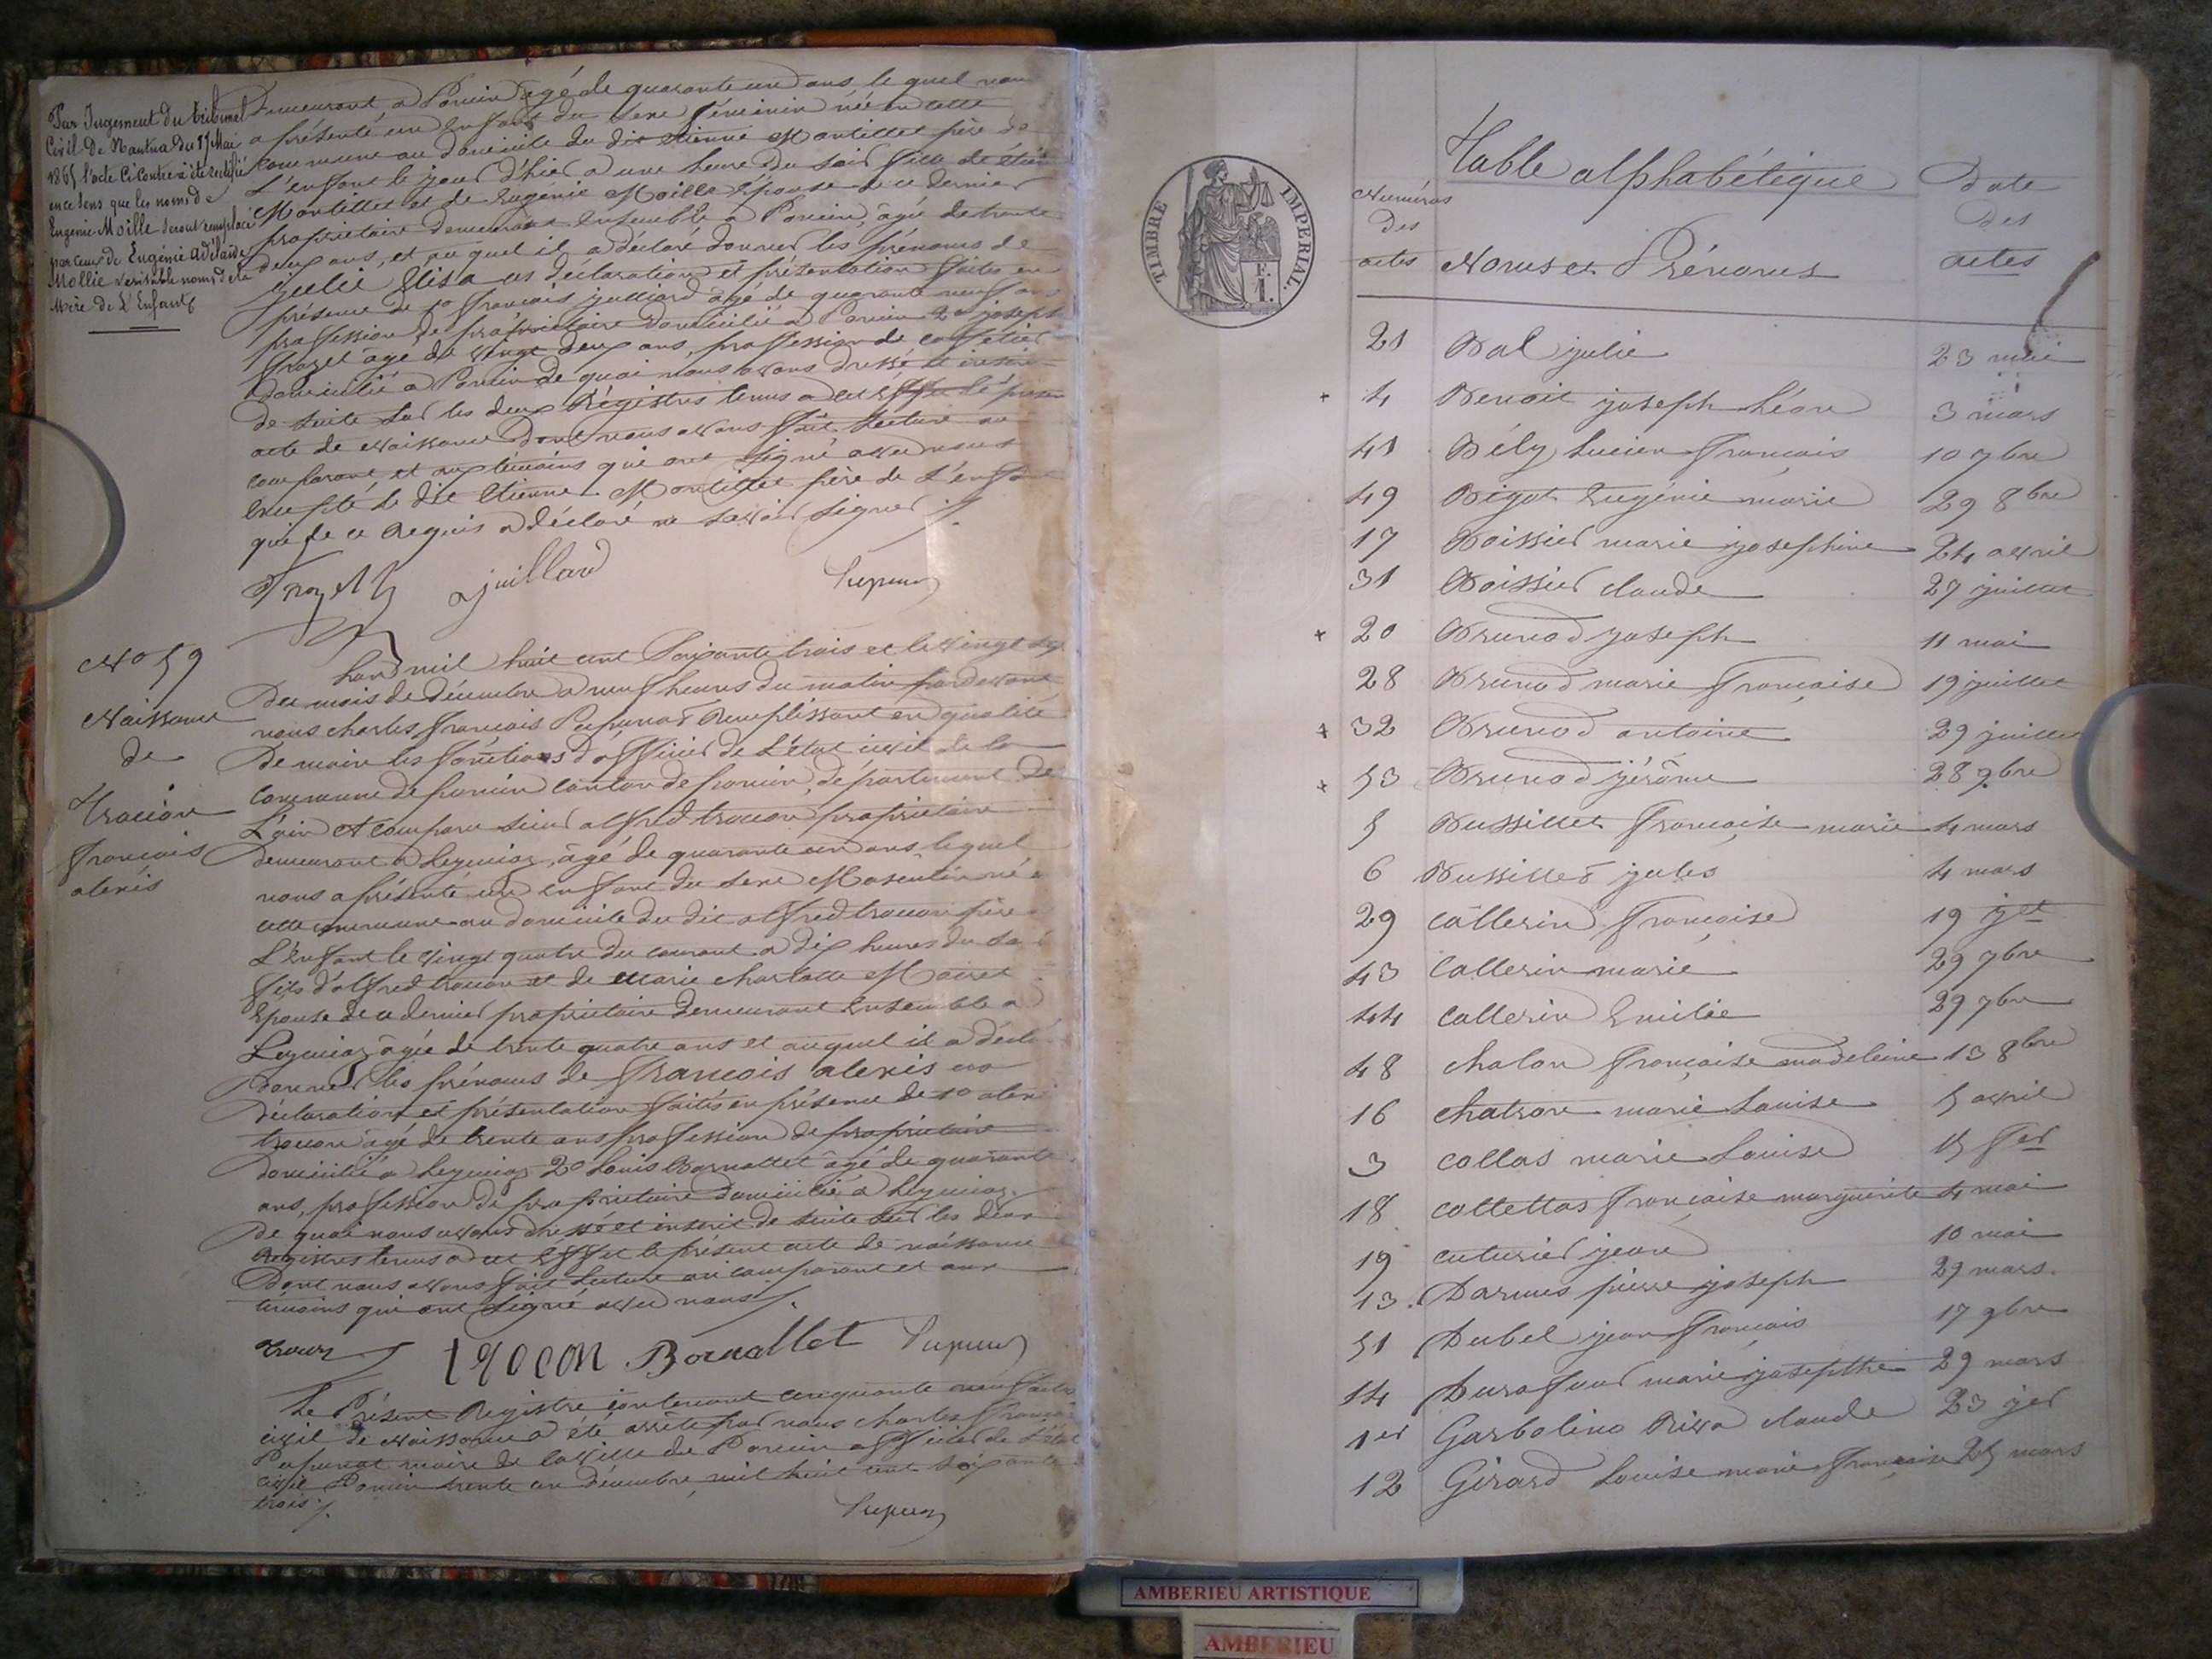 Par Jugement du tribunal
Civil de Nantua du 17 Mai
1865 l'acte ci contre a été rectifié
en ce sens que les noms de
Eugénie Moille seront remplacé
par ceux de Eugénie Adélaïde
Mollie veritable noms de la
Mère de L'Enfant
Demeurant a Poncin agé de quarante un ans, le quel nous
a présenté un Enfant du sexe féminin née en cette
commune au domicile du dit etienne Montillet père de
L'enfant le jour d'hier a une heure du soir fille de étien
Montillet et de Eugénie Moille Epouse de ce dernier
proprietaire demeurant Ensemble a Poncin, agée de trente
deux ans, et au quel il a déclaré donner les prénoms de
julie Elisa les déclaration et présentation faites en
présence de 1o francois julliard agé de quarante neuf ans
profession de propriétaire domicilié a Poncin 2o joseph
frazet âgé de vingt deux ans, profession de cafetier
domicilié a Poncin de quoi nous avons dressé et inscrit
de suite sur les deux Régistres tenus a cet effet le présen
acte de naissance dont nous avons fait lecture au
comparant, et aux témoins qui ont signé avec nous
Excepté le dit Etienne Montillet père de L'enfan
qui de ce Requis a déclaré ne savoir signer
juillard
No 59
Naissance
de
trocon
francois
alexis
L'an mil huit cent Soixante trois et le vingt
Du mois de décembre a neuf heures du matin pardevant
nous charles francois Pupunat Remplissant en qualité
De maire les fonctions d'officier de L'état civil de la
Commune de poncin canton de poncin, département De
L'ain Est comparu sieur alfred trocon proprietaire
Demeurant a Leymiaz, âgé de quarante un ans lequel
nous a présenté un enfant du sexe Masculin né a
cette commune au domicile du dit alfred trocon père
L'enfant le vingt quatre du courant a dix heures du
fils d'alfred trocon et de Marie charlotte Mairet
Epouse de ce dernier proprietaire demeurant Ensemble a
Leymiaz âgée de trente quatre ans et auquel il a déclé
donner les prénoms de francois alexis
déclaration et présentation faites en présence de 1o alexi
trocon âgé de trente ans profession de proprietaire
domicilié a Leymiaz 2o Louis Bornallet âgé de quarante
ans, profession de proprietaire domicilié a Leymiaz
De quoi nous avons dressé et inscrit de suite sur les deux
Registres tenus a cet Effet le présent acte de naissance
Dont nous avons fait lecture au comparant et aux
témoins qui ont signé avec nous
trocon Bornallet Pupunat
Le Présent Registre contenant cinquante neuf actes
civil de naissance a été arrêté par nous charles françois
Pupunat maire de la ville de Poncin officier de L'état
civil Poncin trente un décembre mil huit cent soixante
trois
TIMBRE IMPERIAL.
F. I.
Table alphabétique
Numéros des actes Noms et Prénoms Date des actes
21 Bal julie 23 mai
+ 4 Benoit joseph Léon 3 mars
41 Bély Lucien francois 10 7bre
49 Bigot Eugénie marie 29 8bre
17 Boissier marie josephine 24 avril
31 Boissier claude 27 juillet
+ 20 Brunod joseph 11 mai
28 Brunod marie françoise 19 juillet
+ 32 Brunod antoine 29 juillet
+ 53 Brunod jérôme 28 9bre
5 Bussillet françoise marie 4 mars
6 Bussillet jules 4 mars
29 Callerin françoise 19 jet
43 Callerin marie 29 7bre
44 Callerin Emilie 29 7bre
48 chalon françoise madeleine 13 8bre
16 chatron marie Louise 5 avril
3 collas marie Louise 15 fer
18 collettas françoise marguerite 4 mai
19 cuturier jean 10 mai
13 Darmes pierre joseph 29 mars
51 Dubel jean francois 17 9bre
14 Durafour marie josepthe 29 mars
1er Garbolino Riva claude 23 jer
12 Girard Louise marie françoise 25 mars
AMBERIEU ARTISTIQUE
AMBERIEU